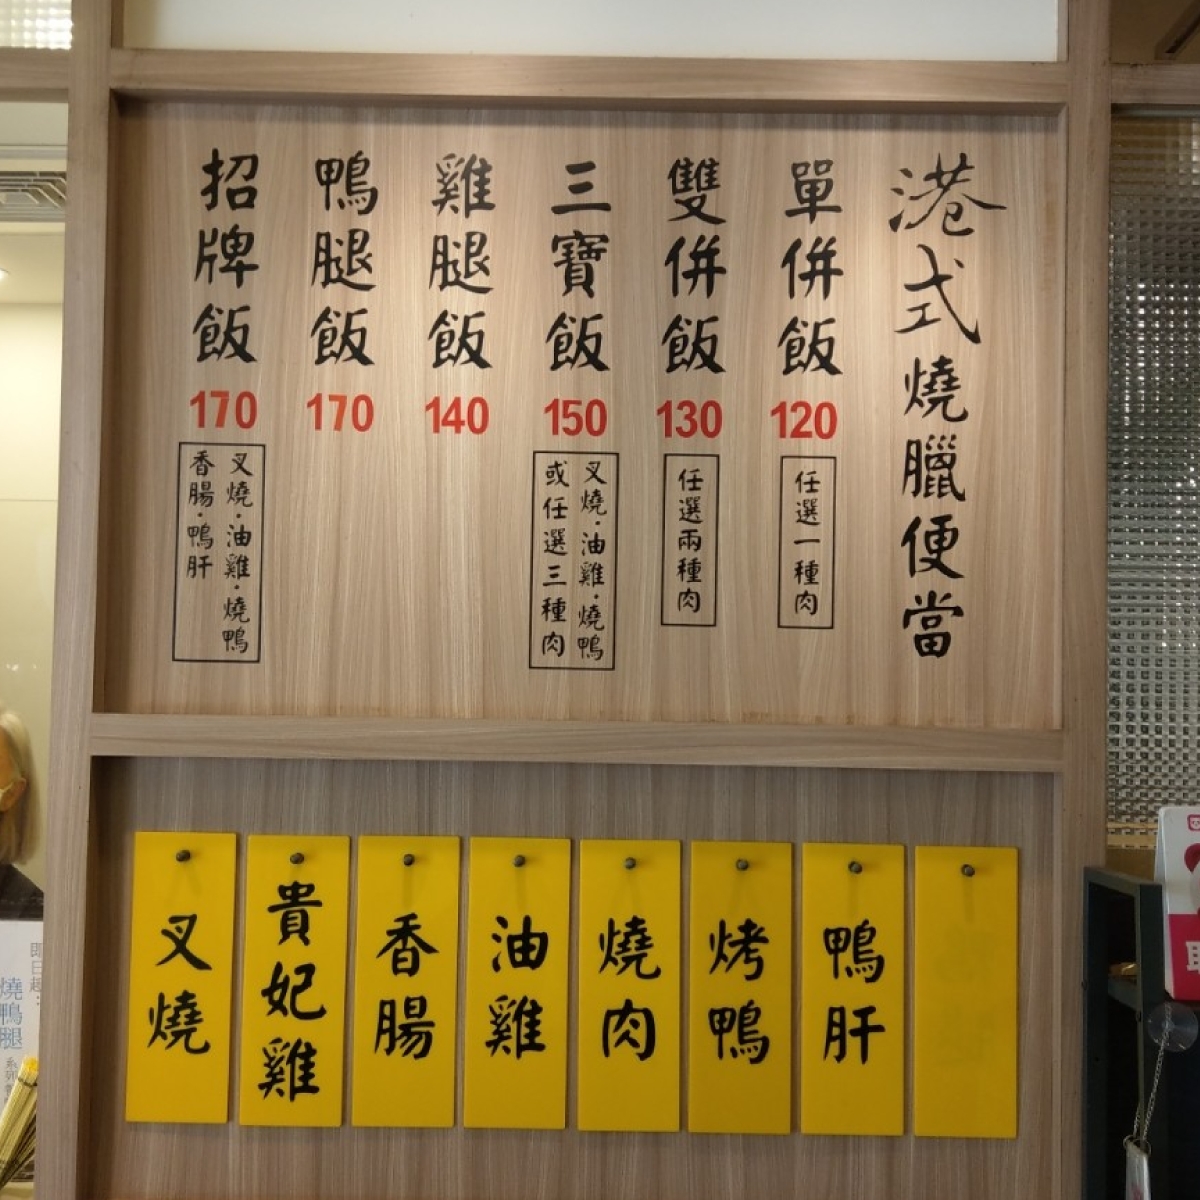 港式燒臘便當
單併飯
120
任選一種肉
雙併飯
130
任選兩種肉
三寶飯
150
叉燒·油雞·燒鴨
或任選三種肉
雞腿飯
140
鴨腿飯
170
招牌飯
170
叉燒·油雞·燒鴨
香腸·鴨肝
叉燒
貴妃雞
香腸
油雞
燒肉
烤鴨
鴨肝
即日起:
燒鴨腿